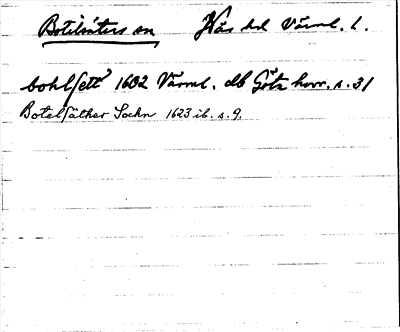 Botilsäters sn Kås hd Värml. l.
bohlsett 1602 Värml. db Götz horr. s. 31
Botelsäther Sochn 1623 ib. s. 9.